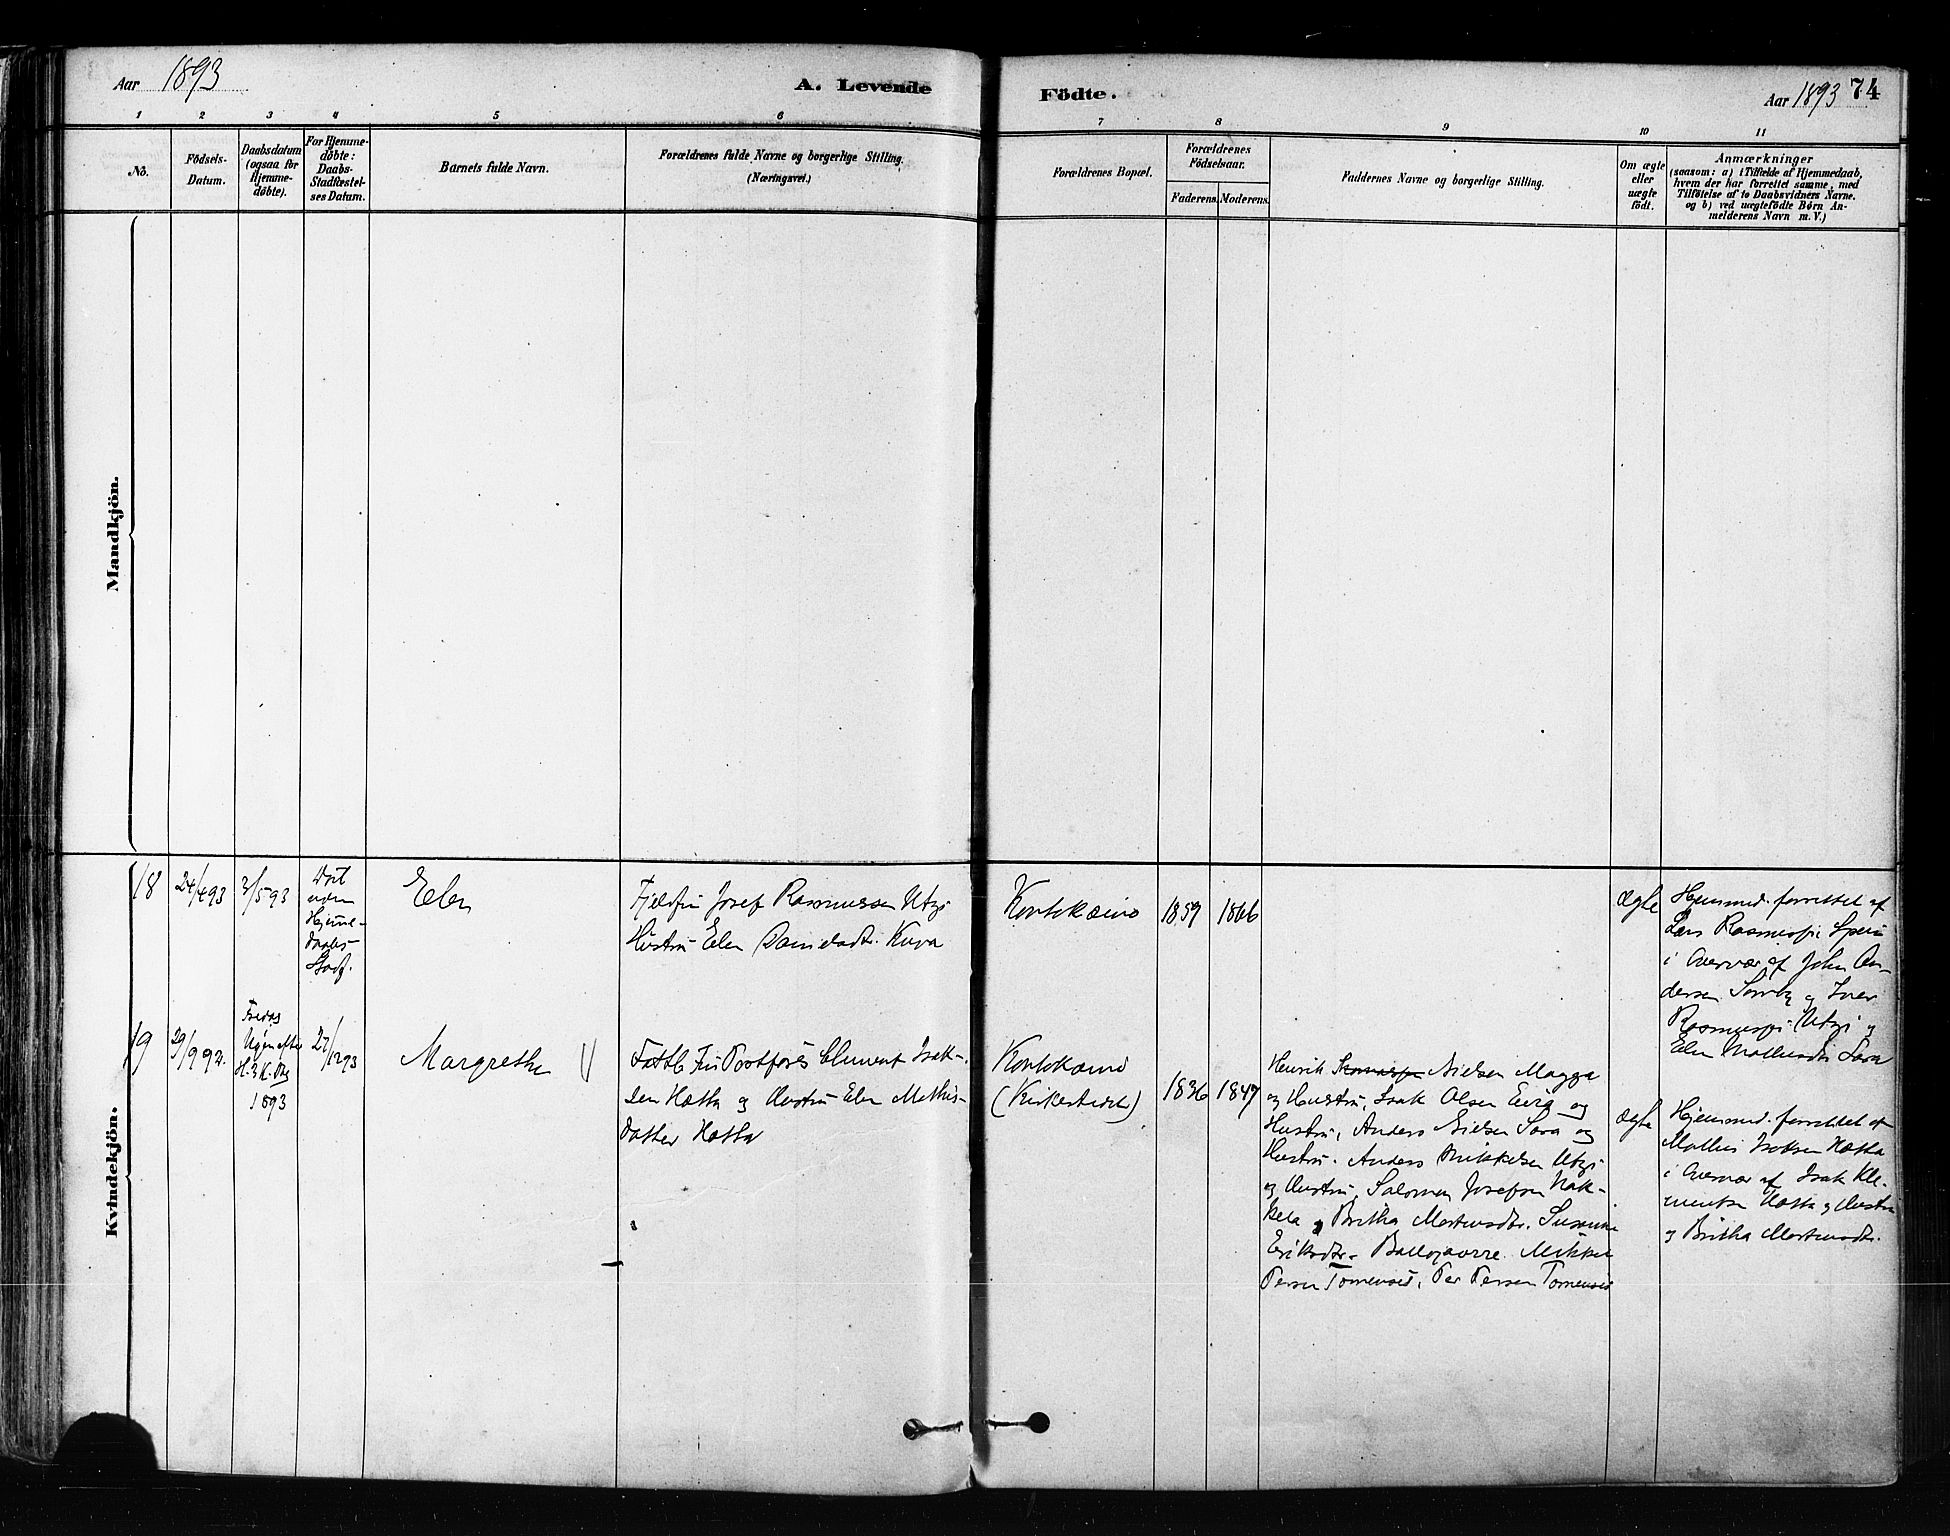 Aar 1893
A. Levende
Födte.
Aar 1893 74
1 2 3 4 5 6 7 8 9 10 11
No.
Födsels-
Datum.
Daabsdatum
(ogsaa for
Hjemme-
döbte).
For Hjemme-
döbte:
Daabs-
Stadfæstel-
ses Datum.
Barnets fulde Navn.
Forældrenes fulde Navne og borgerlige Stilling.
(Næringsvei.)
Forældrenes Bopæl.
Forældrenes
Födselsaar.
Faderens. Moderens.
Faddernes Navne og borgerlige Stilling.
Om ægte
eller
uægte
födt.
Anmærkninger
(saasom: a) i Tilfælde af Hjemmedaab,
hvem der har forrettet samme, med
Tilföielse af to Daabsvidners Navne.
og b) ved uægtefödte Børn An-
melderens Navn m. V.)
Mandkjön.
Kvindekjön.
18
24/4 93
3/5 93
Död
uden
Hjemme-
daabs-
Stadf.
Elen
Fjeldfin Josef Rasmussen Utzi
Hustru Elen Danielsdtr. Kuva
Kautokeino
1859
1866
ægte
Hjemmed. forrettet af
Lars Rasmussen
i Overvær af John An-
dersen og Iver
Rasmussen Utzi og
Elen Mathisdtr Sara
19
29/9 92.
Ugen efter
H. 3 K. Dag
1893
27/12 93
Margrethe
Fattb. Fin Postförer Clement Isak-
sen Hætta og Hustru Elen Mathis-
datter Hætta
Kautokeino
(Kirkestedet)
1836
1847
Henrik Nielsen Magga
og Hustru, Isak Olsen Eira og
Hustru, Anders Nielsen Sara og
Hustru. Anders Mikkelsen Utzi
og Hustru, Salomon Josefsen Nak-
kela og Britha Mortensdtr. Susanne
Eriksdtr. Mikkel
Persen Tornensis, Per Persen Tornensis
ægte
Hjemmed. forrettet af
Mathis Isaksen Hætta
i Overvær af Isak Kle-
mentsen Hætta og Hustru
og Britha Mortensdtr.